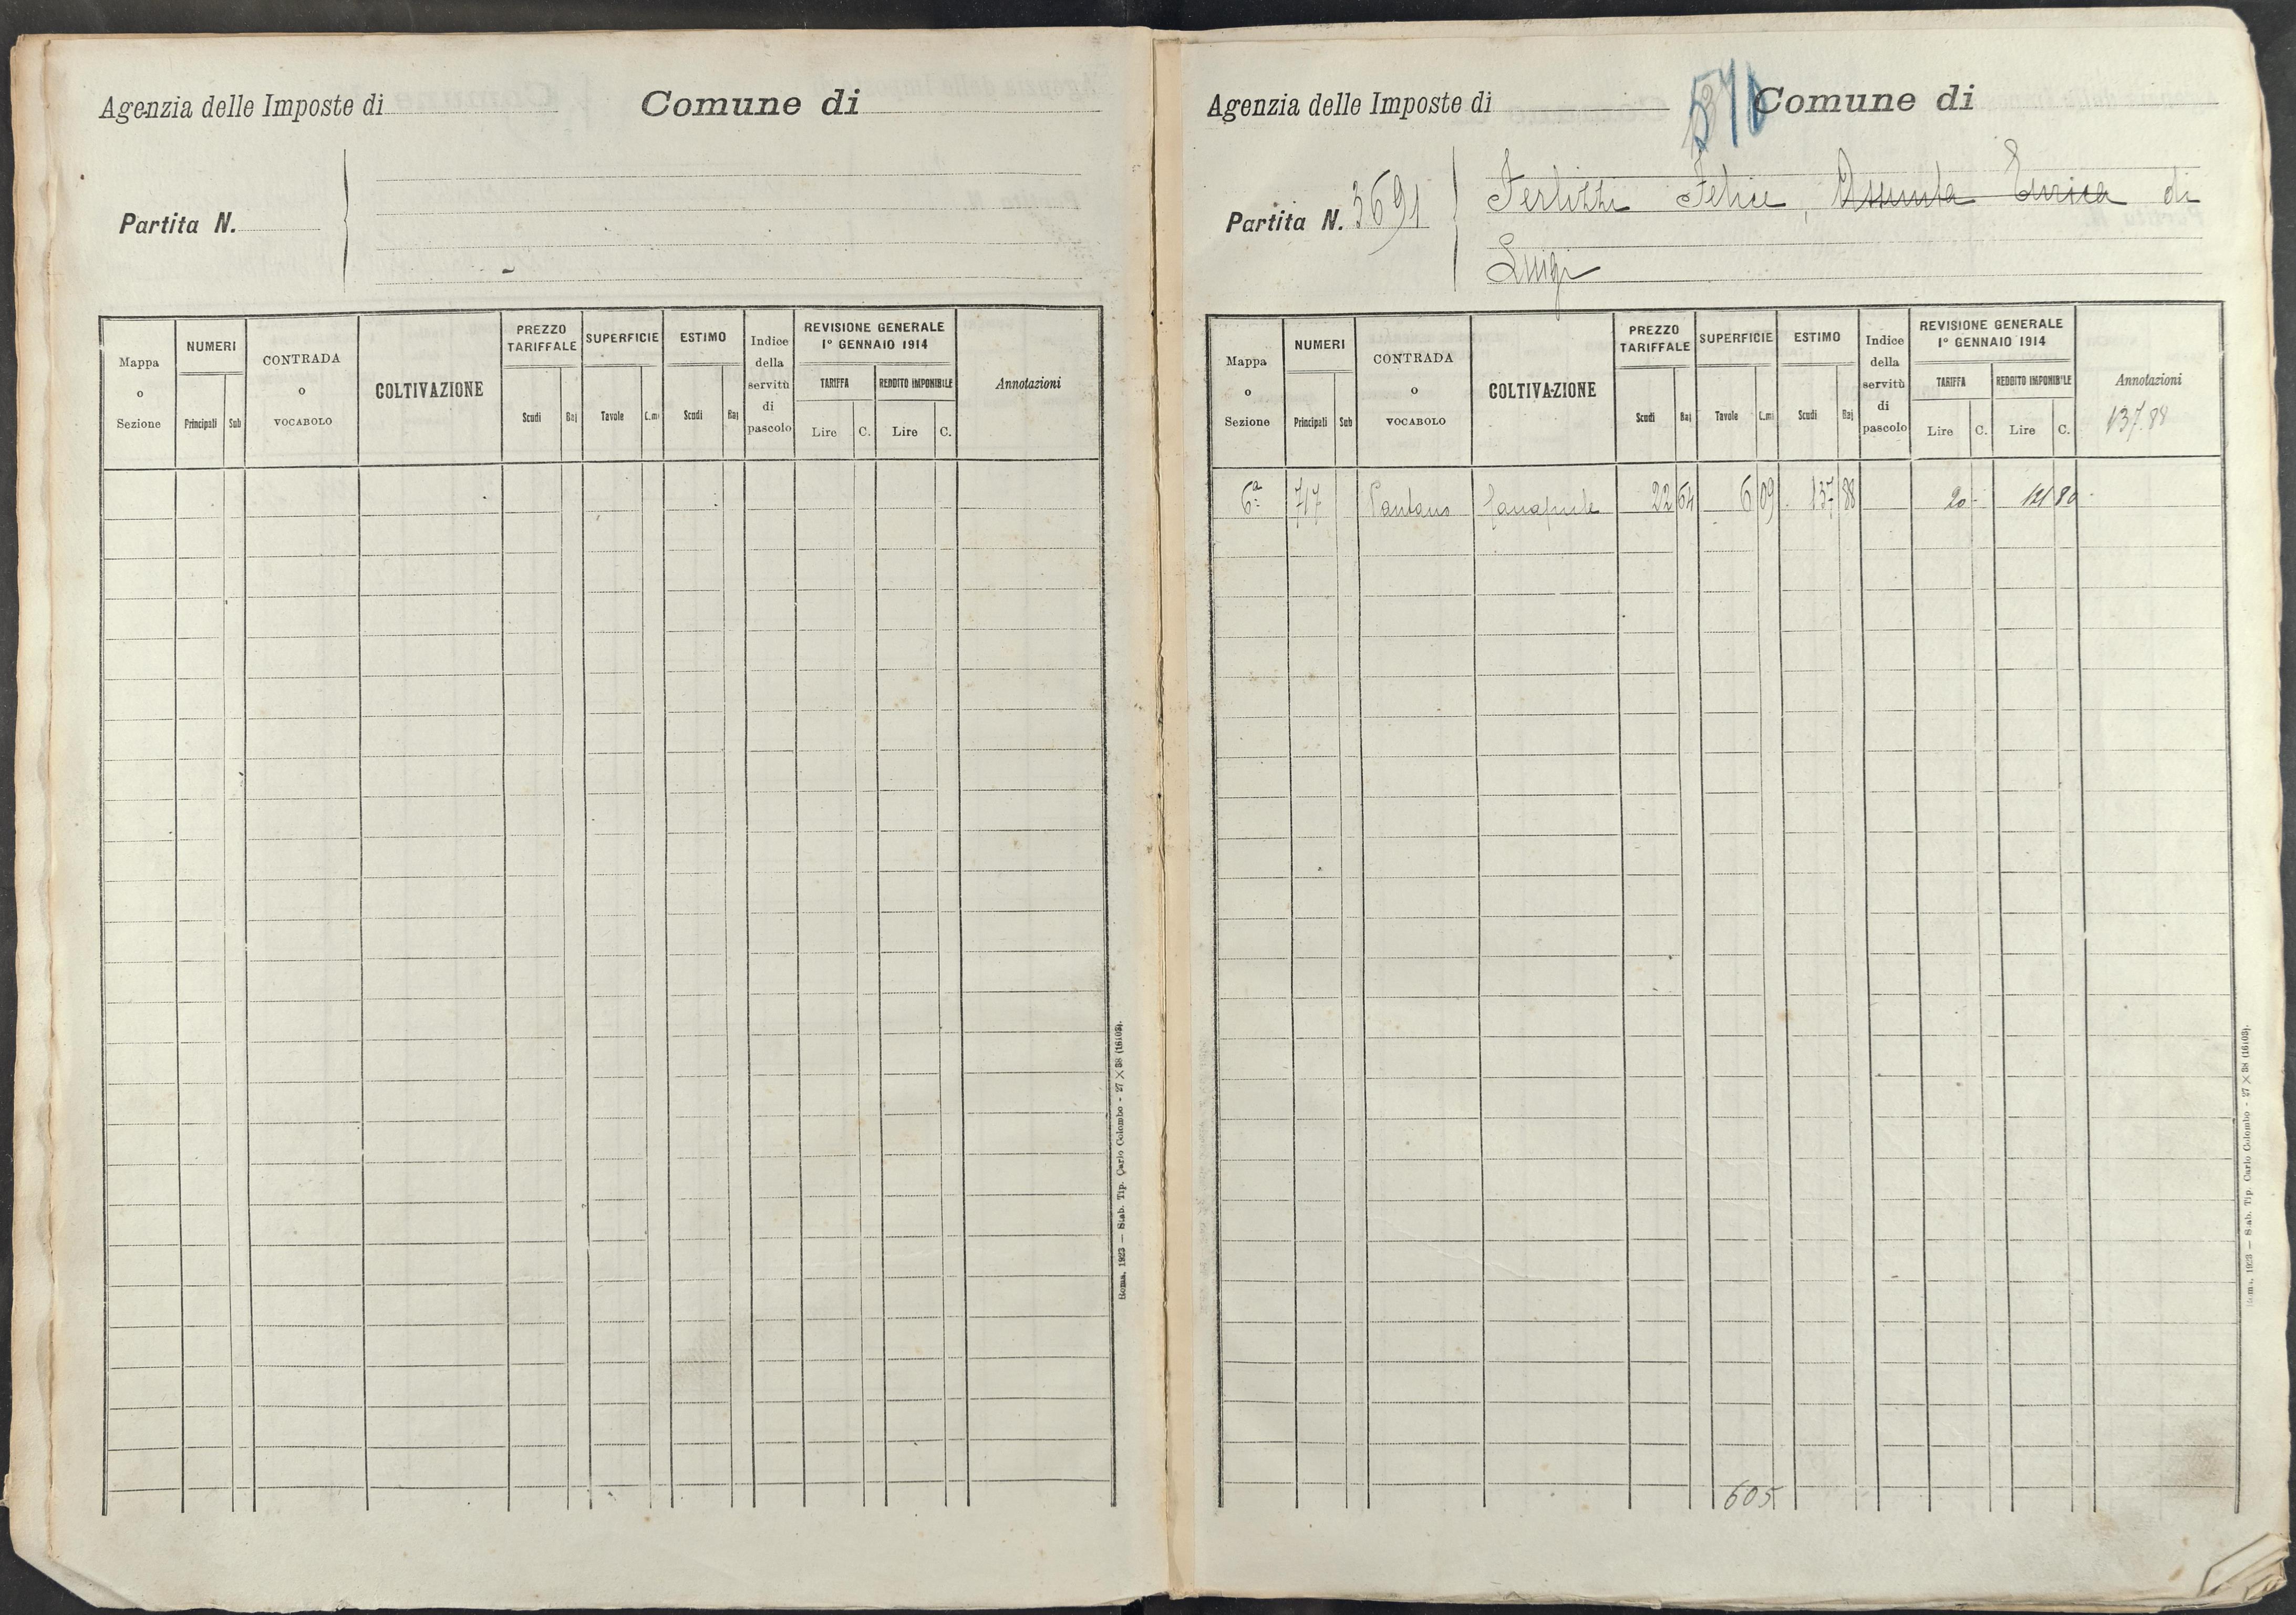 Agenzia delle Imposte di Comune di
Partita N.
Mappa o Sezione
NUMERI
Principali Sub
CONTRADA o VOCABOLO
COLTIVAZIONE
PREZZO TARIFFALE
Scudi Baj
SUPERFICIE
Tavole C.mi
ESTIMO
Scudi Baj
Indice della servitù di pascolo
REVISIONE GENERALE
1° GENNAIO 1914
TARIFFA REDDITO IMPONIBILE
Lire C. Lire C.
Annotazioni
Roma, 1923 — Stab. Tip. Carlo Colombo - 27 X 38 (16103).
Agenzia delle Imposte di Comune di
Partita N. 3691
Ferlizzi Felice, Assunta Enrica di
Luigi
Mappa o Sezione
NUMERI
Principali Sub
CONTRADA o VOCABOLO
COLTIVAZIONE
PREZZO TARIFFALE
Scudi Baj
SUPERFICIE
Tavole C.mi
ESTIMO
Scudi Baj
Indice della servitù di pascolo
REVISIONE GENERALE
1° GENNAIO 1914
TARIFFA REDDITO IMPONIBILE
Lire C. Lire C.
Annotazioni
137.88
6ª 717 Pantano 22 64 6 09 137 88 20 - 121 80
605
Roma, 1923 — Stab. Tip. Carlo Colombo - 27 X 38 (16103).